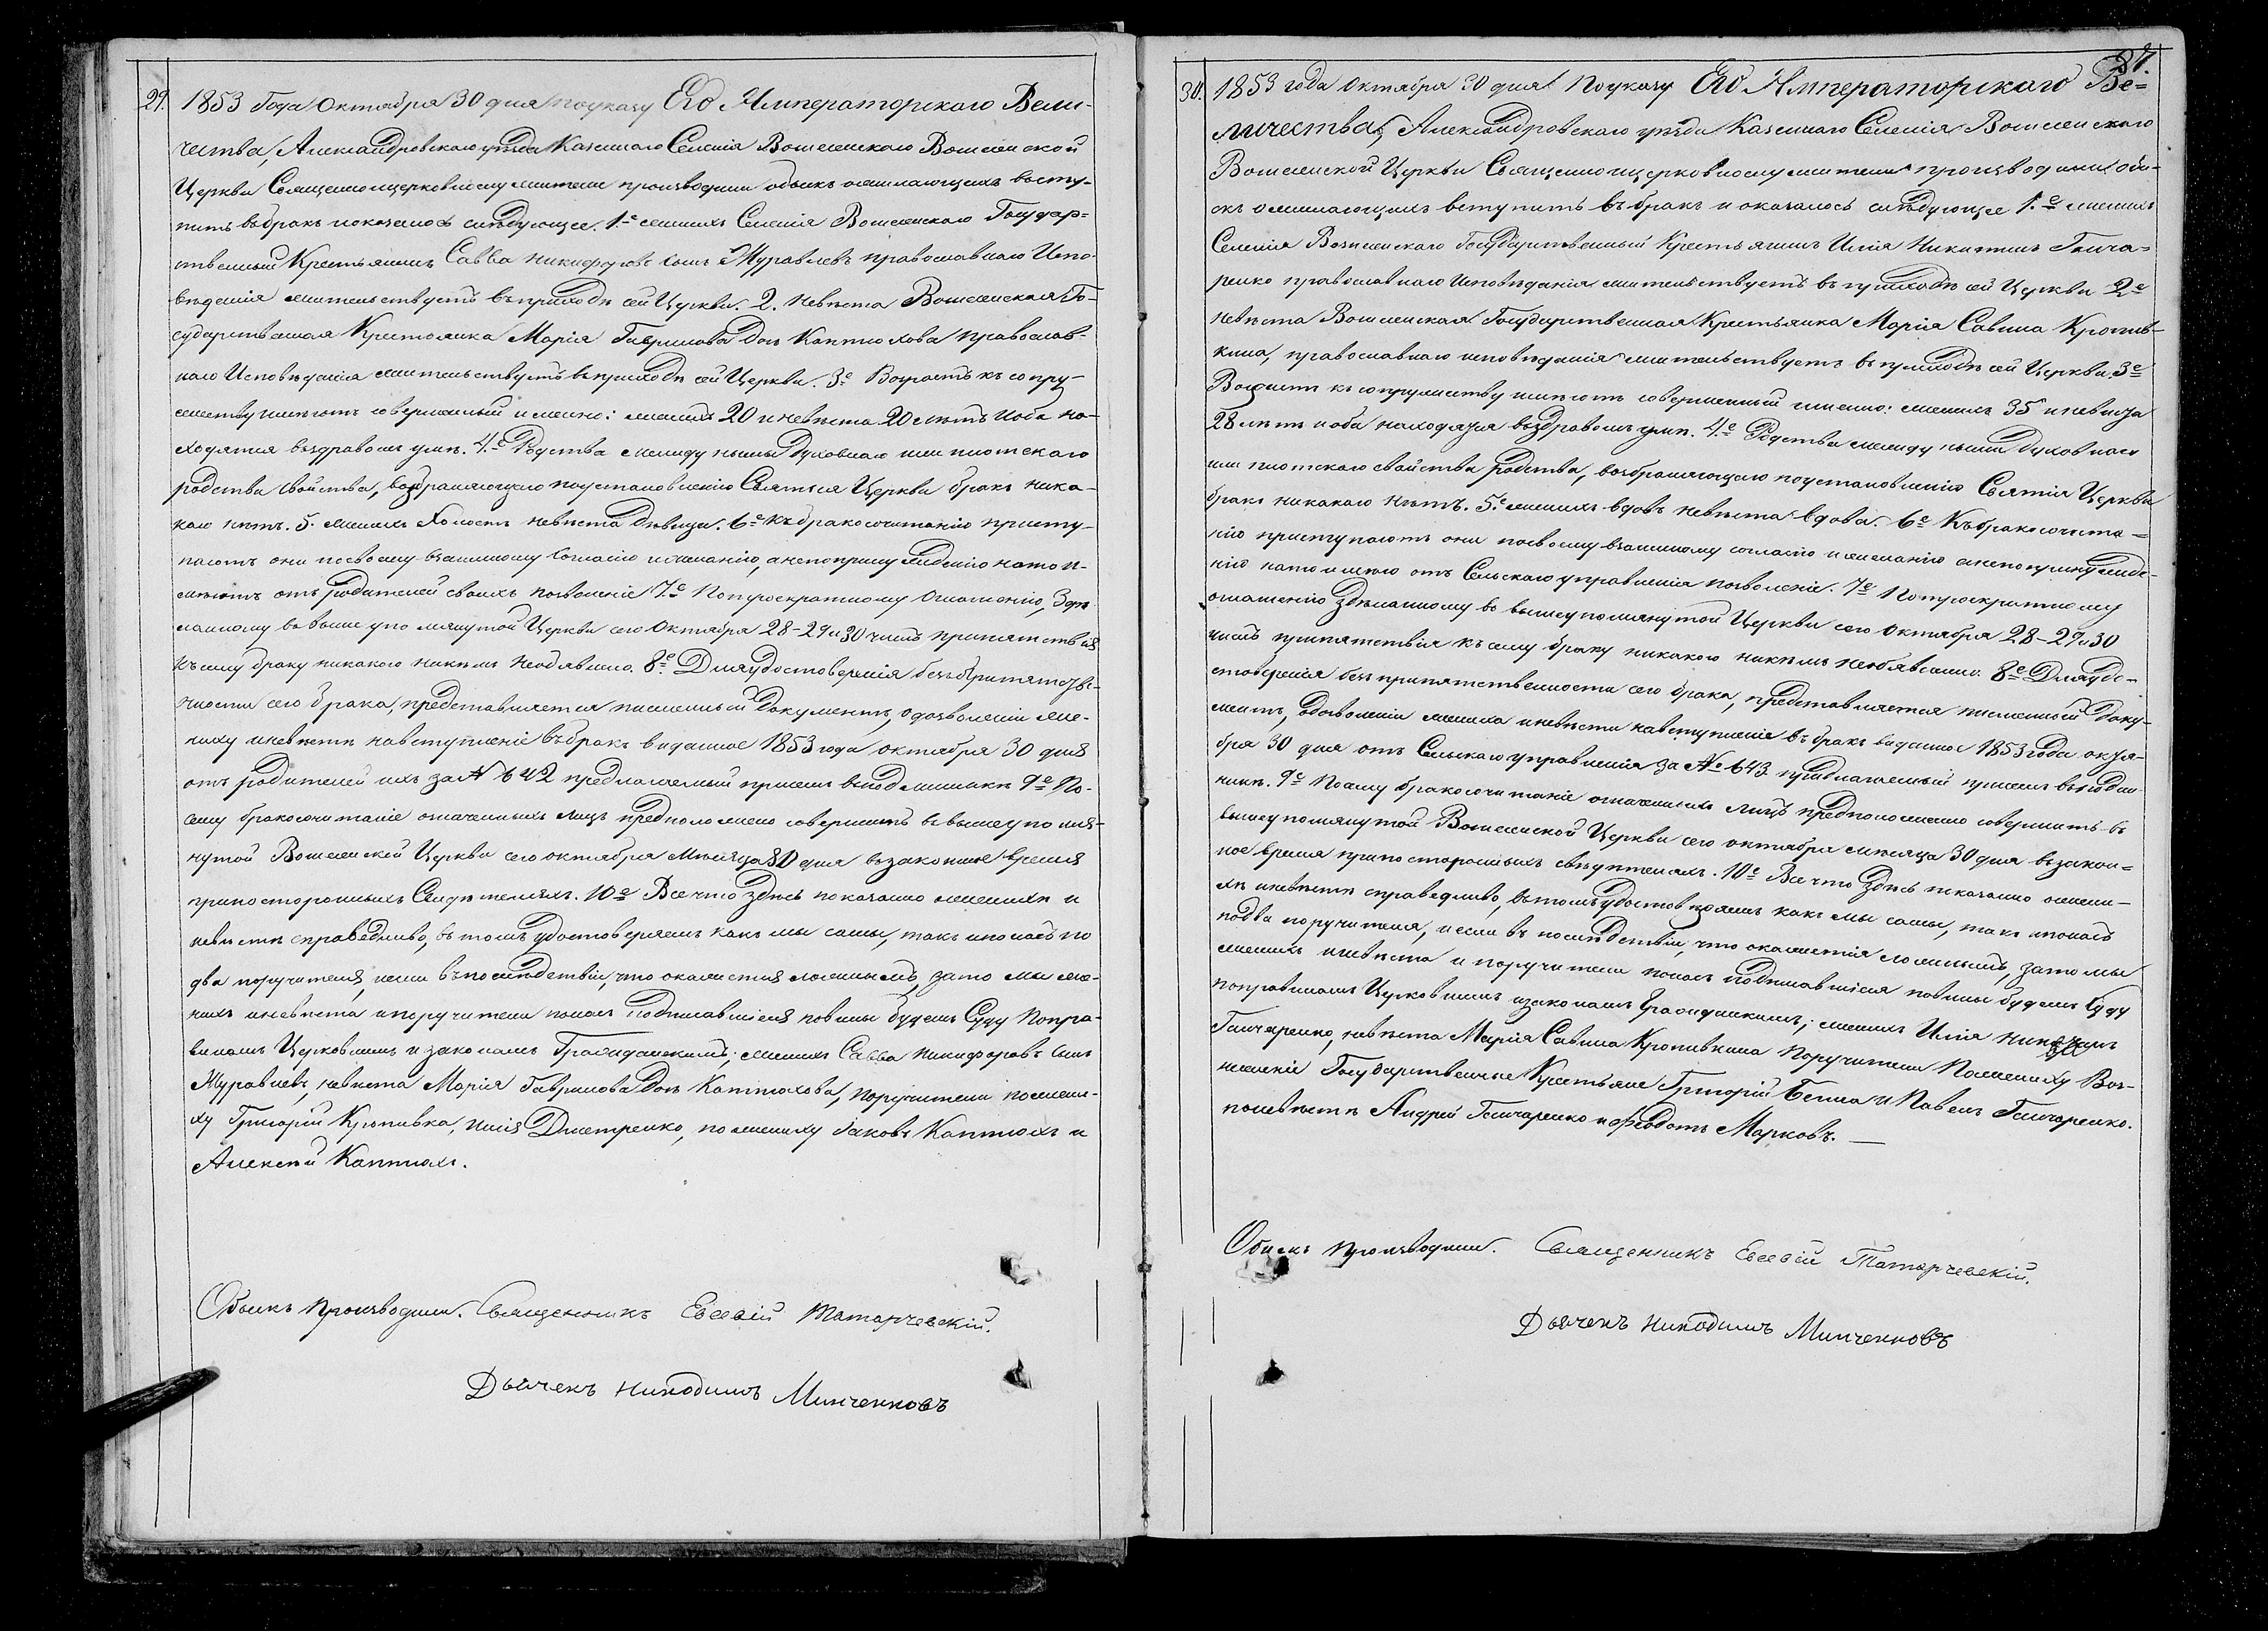 29. 1853 Года Октября 30 дня по указу Его Императорскаго Вели-
чества, Александровскаго уѣзда Казеннаго Селенія Вознесенскаго Вознесенской
Церкви Священноцерковнослужители производили обыскъ о желающихъ всту-
пить въ бракъ и оказалось слѣдующее. 1-е женихъ Селенія Вознесенскаго Государ=
ственный Крестьянинъ Савва Никифоровъ Сынъ Журавлевъ православнаго Испо-
вѣданія жительствуетъ въ приходѣ сей Церкви. 2. Невѣста Вознесенская Го-
сударственная Крестьянка Марія Гаврилова Дочь Каптюхова православ-
наго Исповѣданія жительствуетъ въ приходѣ сей Церкви. 3е Возрастъ къ супру-
жеству имѣютъ совершенный именно: женихъ 20 и невѣста 20 лѣтъ и оба на-
ходятся въ здравомъ умѣ. 4.е Родства между ными Духовнаго или плотскаго
родства свойства, возбраняющаго по установленію Святыя Церкви бракъ ника-
каго нѣтъ. 5. женихъ Холостъ невѣста Дѣвица. 6е Къ бракосочитанію присту-
паютъ они по своему взаимному Согласію и желанію, а не по принужденію на то и-
мѣютъ отъ родителей своихъ позволеніе 7е По троекратному Оглашенію, Здѣ-
ланному въ выше упомянутой Церкви сего Октября 28-29 и 30 числъ препятствія
къ сему браку никакого никѣмъ необявлено. 8е Для удостовѣренія безъ припятстве-
ности сего брака, представляется письменный Документъ, о дозволеніи же-
ниху и невѣстѣ на вступленіе въ бракъ виданное 1853 года октября 30 дня
отъ родителей ихъ за № 642 предлагаемый при семъ въ подлинникѣ 9е По-
сему бракосочитаніе означенныхъ лицъ предположено совершить въ вышеупомя-
нутой Вознесенской Церкви сего октября Мѣсяца 30 дня въ законное время
при постороннихъ Свидѣтеляхъ. 10е Все что здѣсь показано о женихѣ и
невѣстѣ справедливо, въ томъ удостовѣряемъ какъ мы самы, такъ и по насъ по
два поручителя, и если въ послѣдствіи, что окажется ложнымъ, за то мы же-
нихъ и невѣста и поручители по нам Подписавшіеся повины будемъ Суду По пра-
виламъ Церковнимъ и законамъ Гражданскимъ; женихъ Савва Никифоровъ Сынъ
Журавлевъ, невѣста Марія Гаврилова Дочь Каптюхова, Поручители по жени-
ху Григорій Кропивка, Илія Дметренко, по жениху Іаковъ Каптюхъ и
Алексѣй Каптюхъ.
Обыскъ Производили. Священникъ Евсевій Татарчевскій.
Дьячекъ Никодимъ Минченковъ
27.
30. 1853 года Октября 30 дня По указу Его Императорскаго Ве=
личества, Александровскаго уѣзда Казеннаго Селенія Вознесенскаго
Вознесенской Церкви Священноцерковнослужители производили обы-
скъ о желающихъ вступить въ бракъ и оказалось слѣдующее 1.е женихъ
Селенія Вознесенскаго Государственный Крестьянинъ Илія Никитинъ Гонча=
ренко православнаго исповѣданія жительствуетъ въ приходѣ сей Церкви 2е
Невѣста Вознесенская Государственная Крестьянка Марія Савина Кропив-
кина, православнаго исповѣданія жительствуетъ въ приходѣ сей Церкви. 3е
Возрастъ къ супружеству имѣютъ совершенный именно: женихъ 35 и невѣста
28 лѣтъ и оба находятся въ здравомъ умѣ. 4.е Родства между ными Духовнаго
или плотскаго свойства родства, возбраняющаго по установленію Святія Церкви
бракъ никакаго нѣтъ. 5.е женихъ вдовъ невѣста вдова. 6е Къ бракосочита=
нію приступаютъ они по своему взаимному согласію и желанію а не по принужде-
нію на то имѣю отъ Сельскаго управленія позволеніе. 7е По троекратному
оглашенію здѣланному въ вышеупомянутой Церкви сего Октября 28-29 и 30
числъ припятствія къ сему браку никакого никѣмъ необявлено. 8е Для удо-
стовѣренія безъ припятственности сего брака, представляется письменной Доку-
ментъ, о дозволеніи жениха и невѣсти на вступленіе въ бракъ виданное 1853 года октя-
бря 30 дня отъ Сельскаго управленія за № 643 придлагаемый при семъ въ подлин-
никѣ. 9е По сему бракосочитаніе означенныхъ лицъ предположено совершить въ
вышеупомянутой Вознесенской Церкви сего октября мѣсяца 30 дня въ закон=
ное время при постороннихъ свидѣтеляхъ. 10е Все что здѣсь показано о жени-
хѣ и невѣстѣ справедливо, въ томъ удостовѣряемъ какъ мы самы, такъ и по насъ
по два поручителя, и если въ послѣдствіи, что окажется ложнымъ, за то мы
женихъ и невѣста и поручители по нам Подписавшіеся повины будемъ Суду
по правиламъ Церковнимъ и законамъ Гражданскимъ; женихъ Илія Никитинъ
Гончаренко, невѣста Марія Савина Кропивкина Поручители По жениху Воз-
несенскіе Государственные Крестьяне Григорій Бенна и Павелъ Гончаренко.
по невѣстѣ Андрей Гончаренко и Феодотъ Марковъ.—
Обыскъ Производили. Священникъ Евсевій Татарчевскій.
Дьячекъ Никодимъ Минченковъ